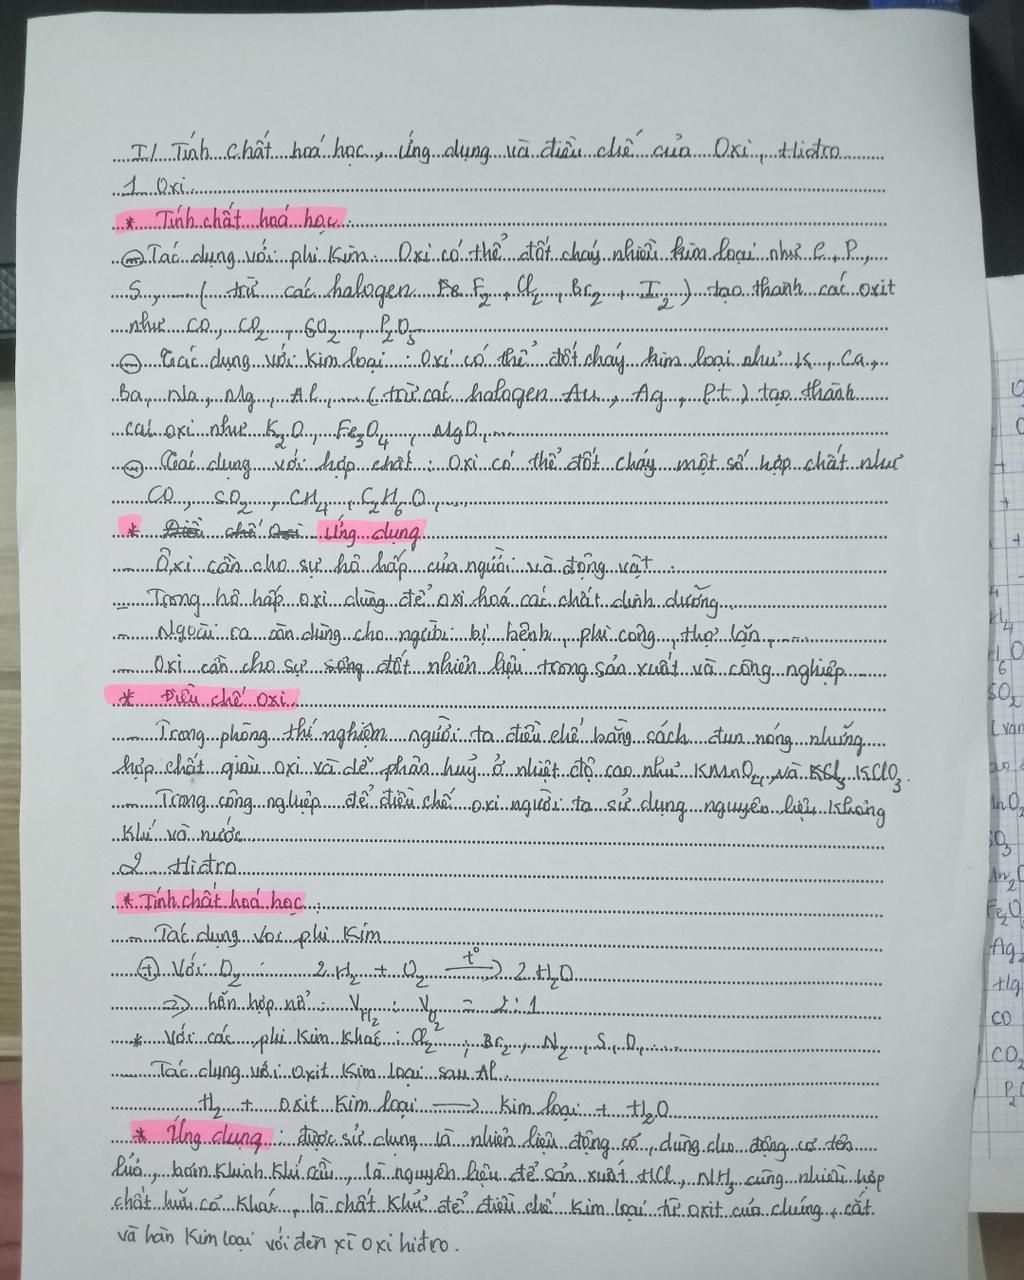 I/ Tính chất hoá học, ứng dụng và điều chế của Oxi, Hiđro
1 Oxi
* Tính chất hoá học:
- Tác dụng với phi kim: Oxi có thể đốt cháy nhiều kim loại như C, P,
S, ... (trừ các halogen F2, Cl2, Br2, I2) tạo thanh các oxit
như CO, CO2, SO2, P2O5
- Tác dụng với kim loại: Oxi có thể đốt cháy kim loại như K, Ca,
Ba, Na, Mg, Al, ... (trừ các halogen Au, Ag, Pt) tạo thành
các oxi như K2O, Fe3O4, MgO, ...
- Tác dụng với hợp chất: Oxi có thể đốt cháy một số hợp chất như
CO, SO2, CH4, C2H6O, ...
* Điều chế Oxi Ứng dụng
- Oxi cần cho sự hô hấp của người và động vật.
- Trong hô hấp oxi dùng để oxi hoá các chất dinh dưỡng
- Ngoài ra cần dùng cho người bị bệnh, phi công, thợ lặn, ...
- Oxi cần cho sự sống đốt nhiên liệu trong sản xuất và công nghiệp
* Điều chế oxi
- Trong phòng thí nghiệm người ta điều chế bằng cách đun nóng những
hợp chất giàu oxi và dễ phân huỷ ở nhiệt độ cao như KMnO4, và KCl3 KClO3.
- Trong công nghiệp để điều chế oxi người ta sử dụng nguyên liệu không
khí và nước
2 Hiđro
* Tính chất hoá học:
- Tác dụng với phi kim
+ Với O2: 2H2 + O2 t° → 2H2O
=> hỗn hợp nổ: VH2 : VO2 = 2:1
* Với các phi kim khác: Cl2, Br2, N2, S, O, ...
- Tác dụng với oxit kim loại sau Al.
H2 + oxit kim loại → kim loại + H2O
* Ứng dụng: được sử dụng là nhiên liệu động cơ, dùng cho động cơ tên
lửa, bơm khinh khí cầu, là nguyên liệu để sản xuất HCl, NH3 cùng nhiều hợp
chất hữu cơ khác, là chất khử để điều chế kim loại từ oxit của chúng, cắt
và hàn kim loại với đèn xì oxi hiđro.
CO
CO2